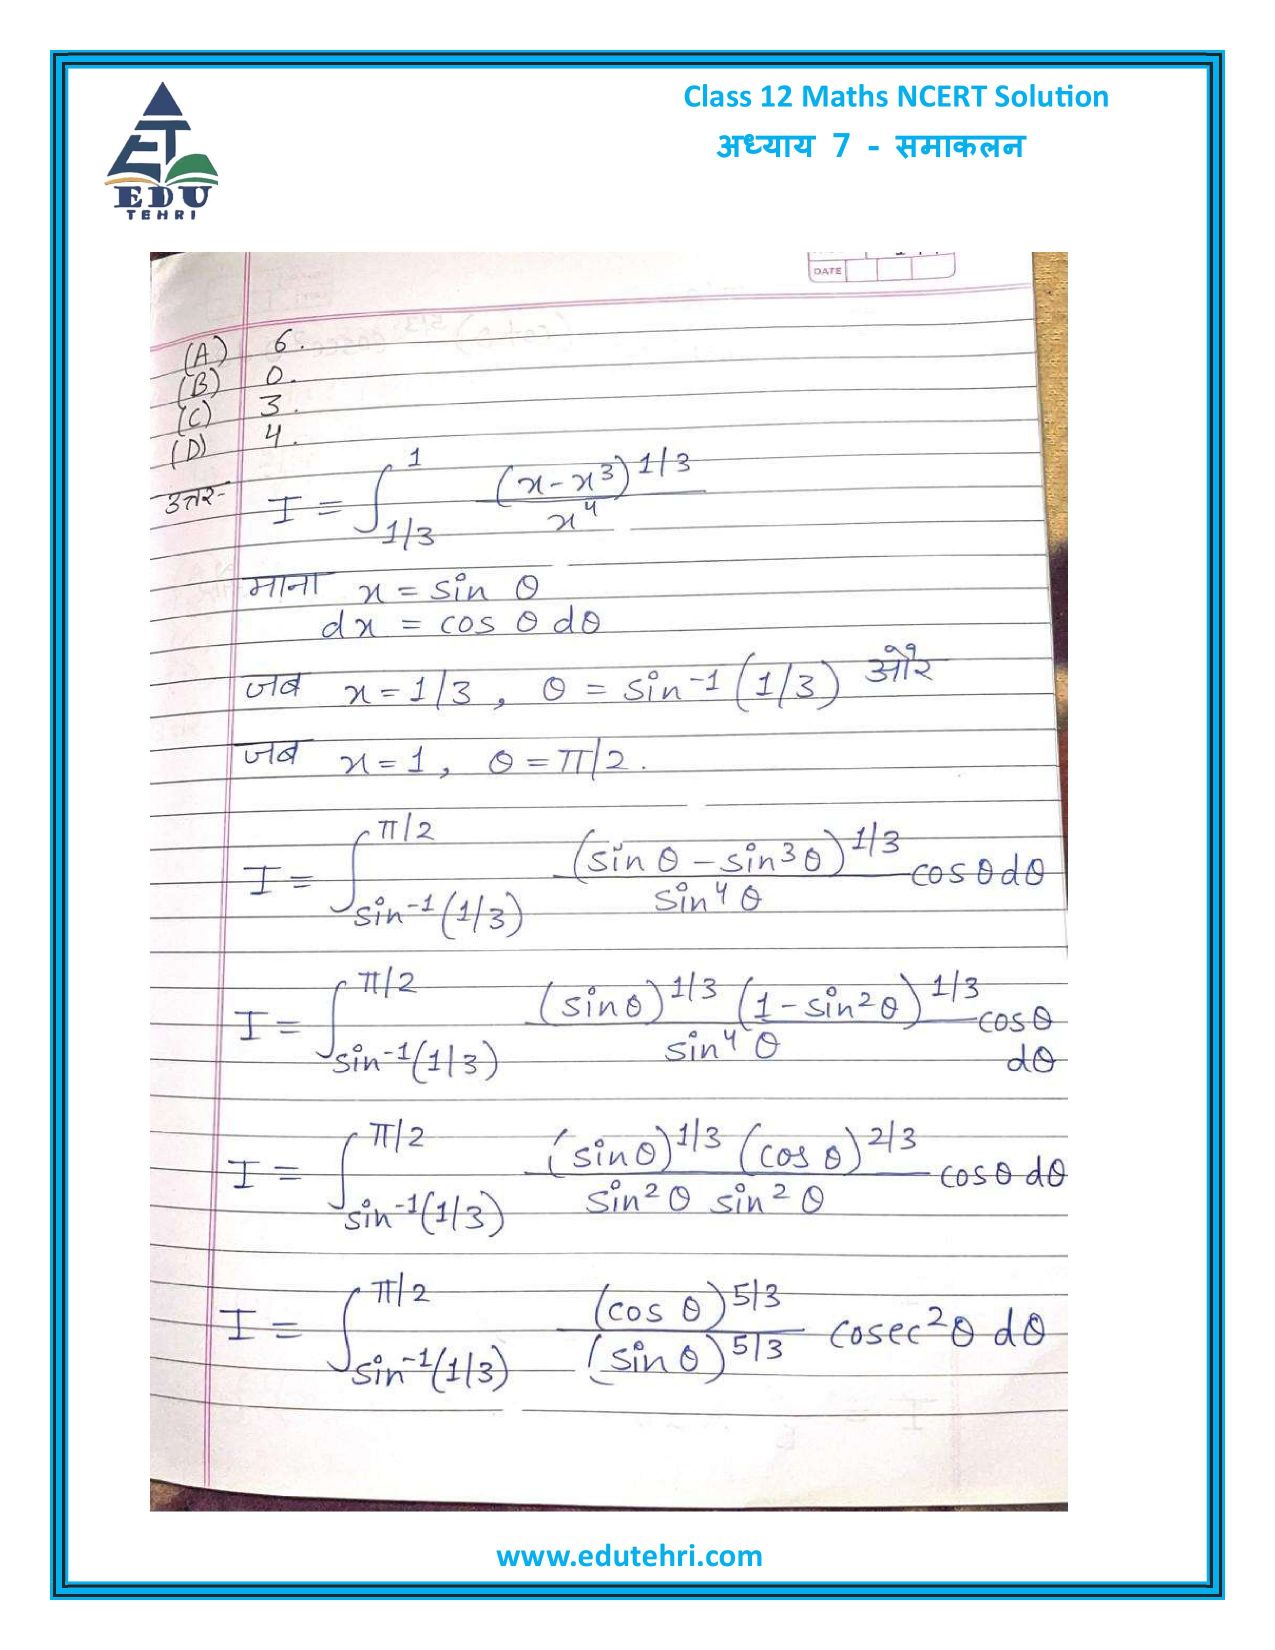 Class 12 Maths NCERT Solution
अध्याय 7 - समाकलन
EDU
TEHRI
DATE
(A) 6.
(B) 0.
(C) 3.
(D) 4.
उत्तर- I = ∫_{1/3}^{1} (x-x³)^{1/3} / x⁴
माना x = sin θ
dx = cos θ dθ
जब x = 1/3, θ = sin⁻¹(1/3) और
जब x = 1, θ = π/2.
I = ∫_{sin⁻¹(1/3)}^{π/2} (sin θ - sin³θ)^{1/3} / sin⁴θ cos θ dθ
I = ∫_{sin⁻¹(1/3)}^{π/2} (sin θ)^{1/3} (1 - sin²θ)^{1/3} / sin⁴θ cos θ
dθ
I = ∫_{sin⁻¹(1/3)}^{π/2} (sin θ)^{1/3} (cos θ)^{2/3} / sin²θ sin²θ cos θ dθ
I = ∫_{sin⁻¹(1/3)}^{π/2} (cos θ)^{5/3} / (sin θ)^{5/3} cosec²θ dθ
www.edutehri.com